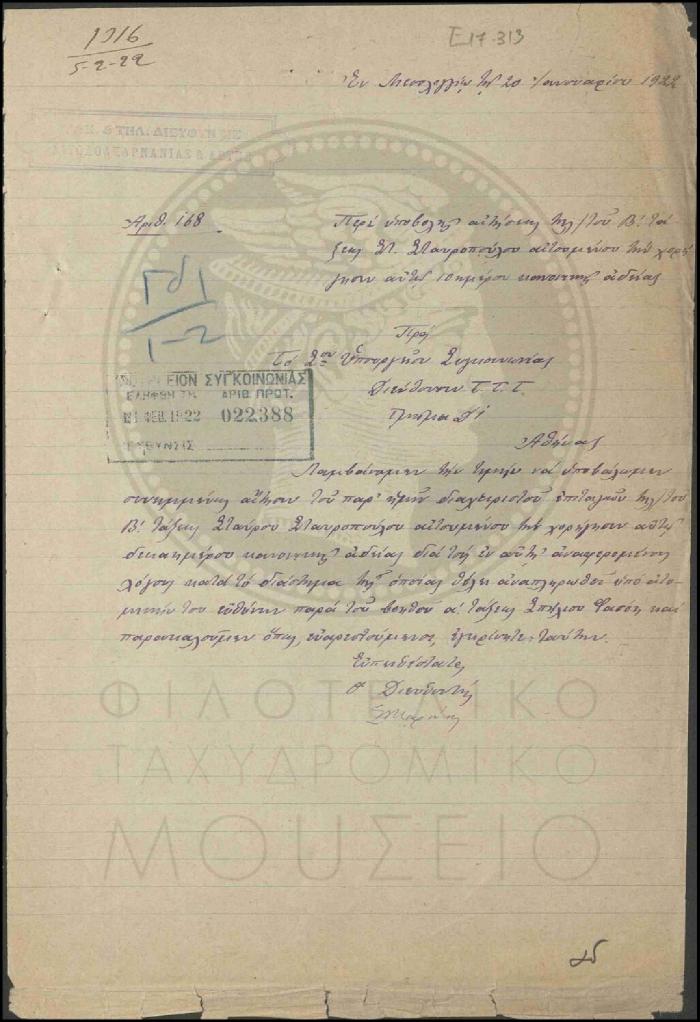 1016
5-2-22
Ε17-313
Ἐν Μεσολογγίῳ τῇ 20 Ἰανουαρίου 1922
& ΤΗΛ. ΔΙΕΥΘΥΝΣΙΣ
ΑΙΤΩΛΟΑΚΑΡΝΑΝΙΑΣ & ΑΡΤΗΣ
Ἀριθ. 168
Περὶ ὑποβολῆς αἰτήσεως τηλ/τοῦ Β! τά
ξεως Στ. Σταυροπούλου αἰτουμένου τὴν χορή
γησιν αὐτῷ 10ημέρου κανονικῆς ἀδείας
1-2
Πρὸς
Τὸ Σον Ὑπουργεῖον Συγκοινωνίας
Διεύθυνσιν Τ.Τ.Τ.
Τμῆμα Δ!
Ἀθήνας
ΥΠΟΥΡΓΕΙΟΝ ΣΥΓΚΟΙΝΩΝΙΑΣ
ΕΛΗΦΘΗ ΤΗ ΑΡΙΘ. ΠΡΩΤ.
ΦΕΒ. 1922 022388
ΔΙΕΥΘΥΝΣΙΣ
Λαμβάνομεν τὴν τιμὴν νὰ ὑποβάλωμεν
συνημμένως αἴτησιν τοῦ παρ' ἡμῖν διαχειριστοῦ ἐπιταγῶν τηλ/τοῦ
Β! τάξεως Σταύρου Σταυροπούλου αἰτουμένου τὴν χορήγησιν αὐτῷ
δεκαημέρου κανονικῆς ἀδείας διὰ τοὺς ἐν αὐτῇ ἀναφερομένους
λόγους κατὰ τὸ διάστημα τῆς ὁποίας θέλει ἀναπληρωθεῖ ὑπ' ἀτο
μικήν του εὐθύνην παρὰ τοῦ βοηθοῦ α! τάξεως Σπήλιου καὶ
παρακαλοῦμεν ὅπως, εὐαρεστούμενος, ἐγκρίνητε ταύτην.
Εὐπειθέστατος
Ὁ Διευθυντὴς
ΦΙΛΟΤΕΛΙΚΟ
ΤΑΧΥΔΡΟΜΙΚΟ
ΜΟΥΣΕΙΟ